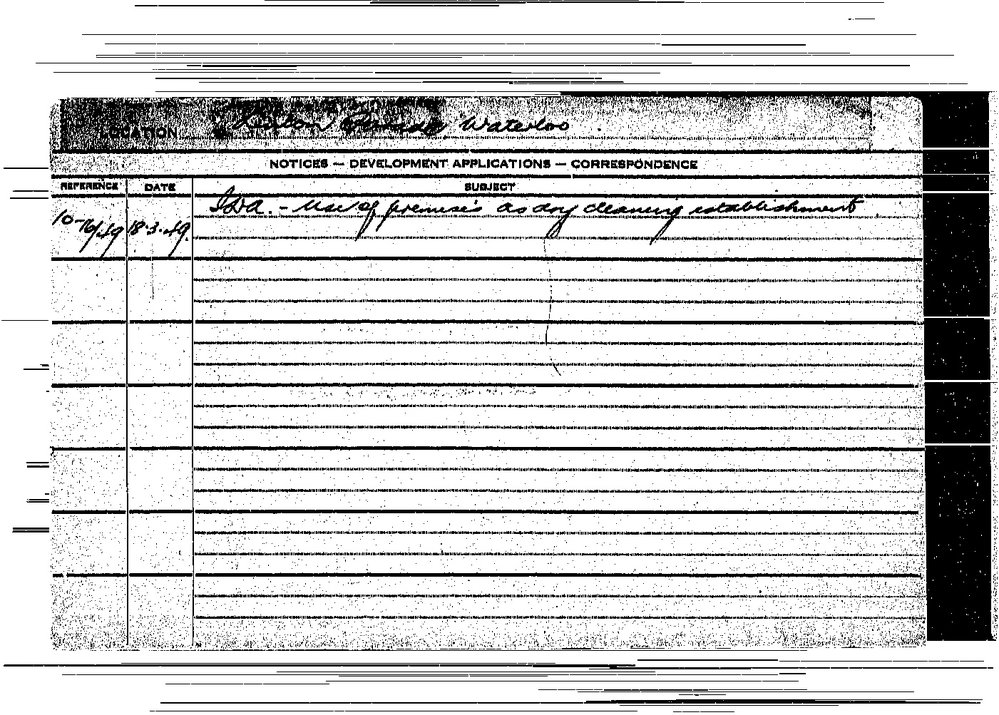 LOCATION Waterloo
NOTICES — DEVELOPMENT APPLICATIONS — CORRESPONDENCE
REFERENCE DATE SUBJECT
I.D.A. - Use of premises as dry cleaning establishment
10-76/49 18.3.49.